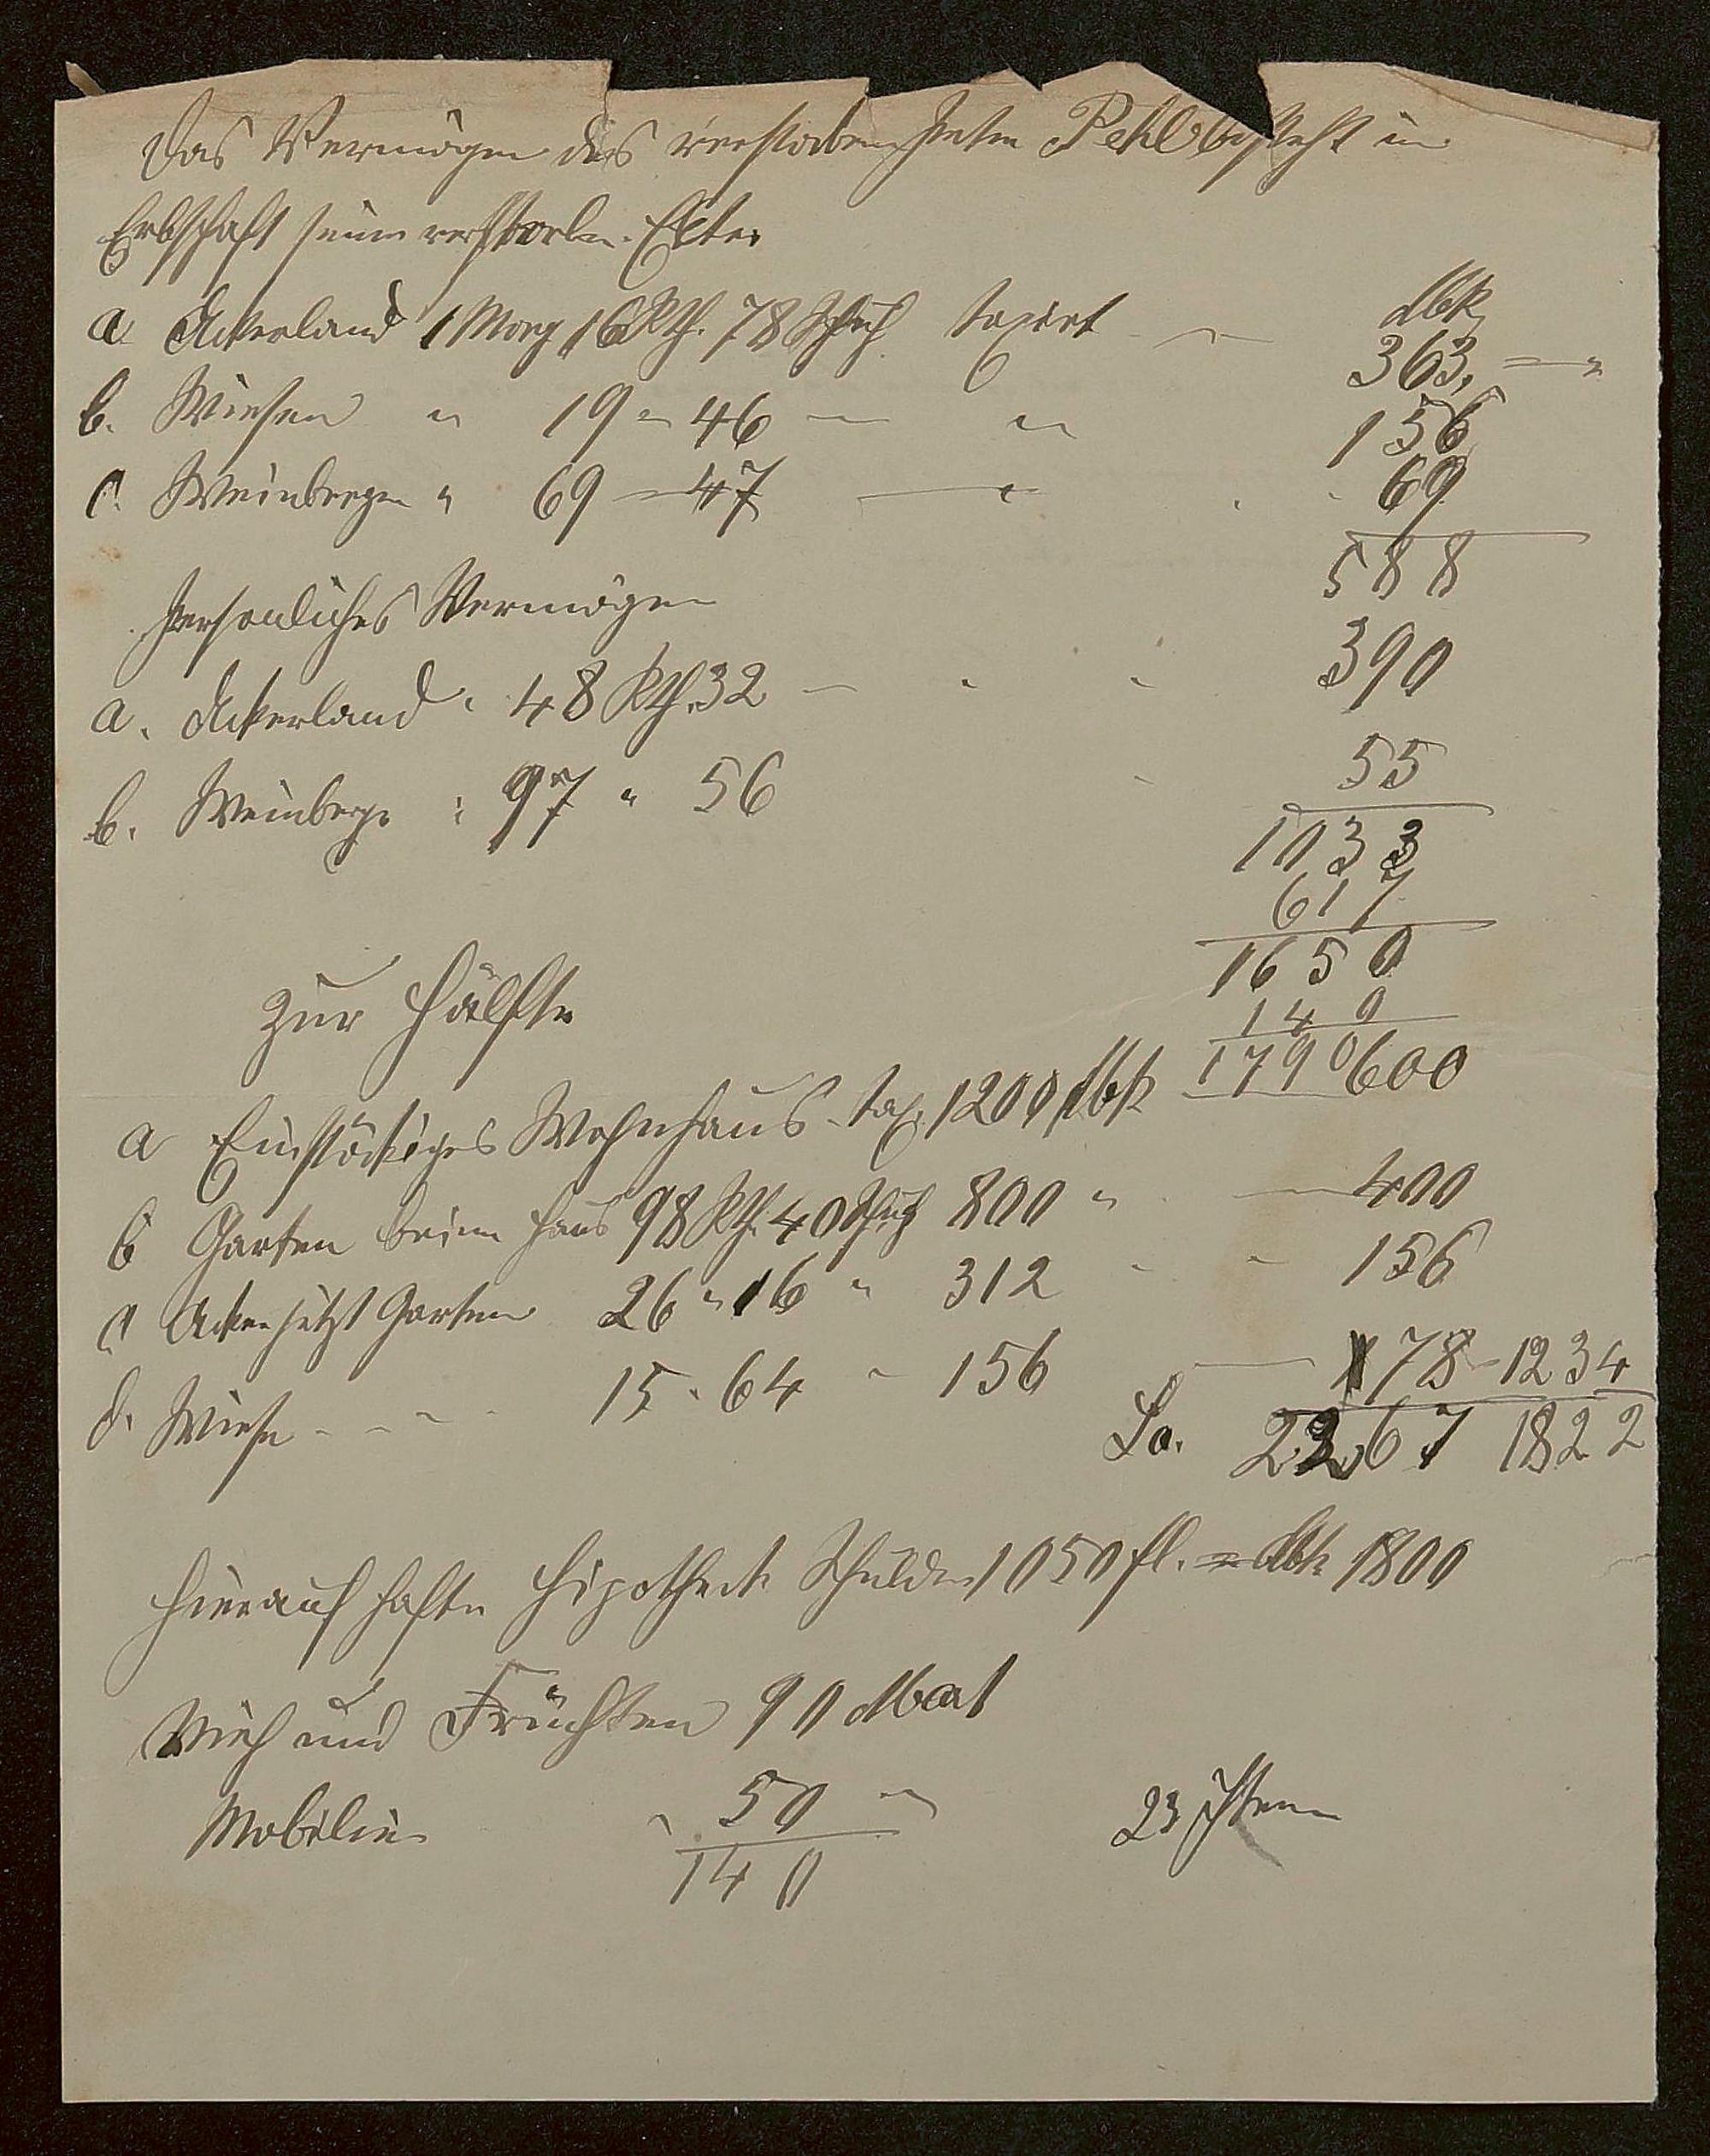 Das Vermögen des verstorben Peter Pehl besteht in
Erbschaft seiner verstorbn. Elter
a Ackerland 1 Morg 16 Rth. 78 Schuh taxirt — Mk
363, — "
b. Wiesen " 19 " 46 — " 156
c. Weinbergen " 69 — 47 — " 69
588
Persönliches Vermögen
a. Ackerland " 48 Rth. 32 — " " 390
b. Weinberge : 97 " 56 " 55
1033
617
1650
zur Hälfte
140
1790
a Einstöckiges Wohnhaus tax. 1200 Mk 600
b Garten beim Haus 98 Rth. 40 Schuh 800 " — 400
c Acker jetzt Garten 26 " 16 " 312 " " 156
d. Wiese - - - 15 " 64 " 156 — 78 - 1234
Sa. 2267 1822
Hierauf haften Hipotheck Schulden 1050 fl. = Mk 1800
Vieh und Früchten 90 Mark
Mobilien " 50 "
140
23